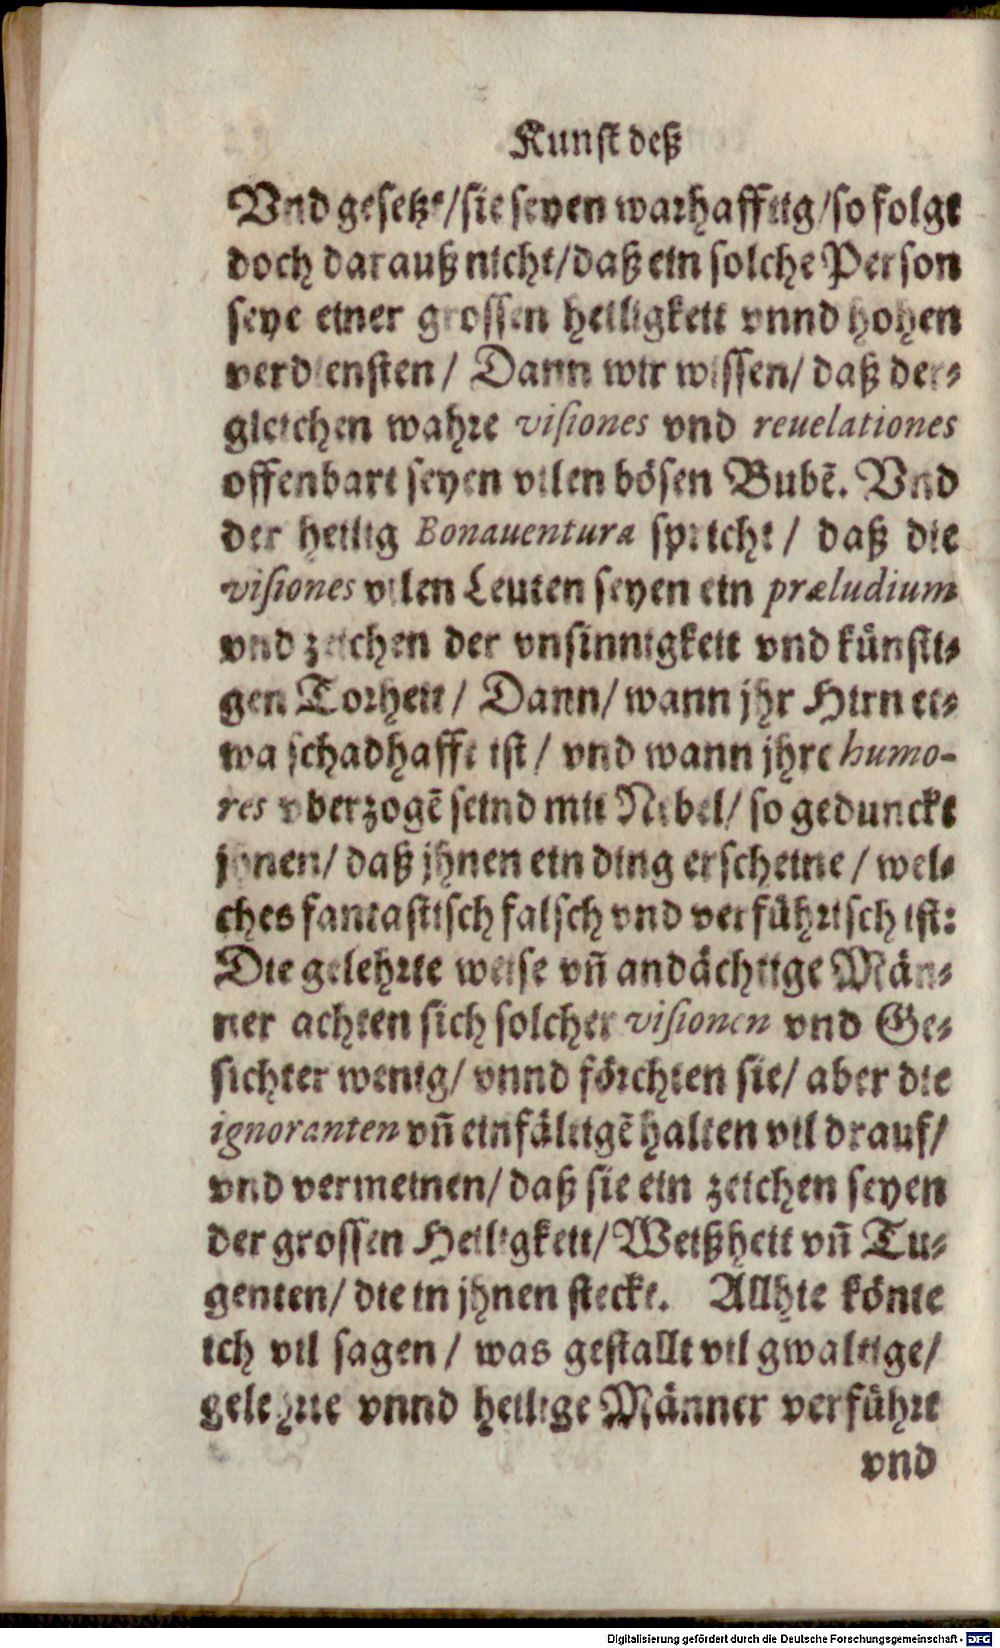 Kunst deß
Vnd gesetzt/sie seyen warhafftig/so folgt
doch darauß nicht/daß ein solche Person
seye einer grossen heiligkeit vnnd hohen
verdiensten/ Dann wir wissen/ daß der-
gleichen wahre visiones vnd reuelationes
offenbart seyen vilen bösen Bubẽ. Vnd
der heilig Bonauentura spricht/ daß die
visiones vilen Leuten seyen ein præludium
vnd zeichen der vnsinnigkeit vnd künffti-
gen Torheit/ Dann/ wann jhr Hirn et-
wa schadhafft ist/ vnd wann jhre humo-
res vberzogẽ seind mit Nebel/ so geduncke
jhnen/ daß jhnen ein ding erscheine/ wel-
ches fantastisch falsch vnd verführisch ist:
Die gelehrte weise vñ andächtige Män-
ner achten sich solcher visionen vnd Ge-
sichter wenig/ vnnd förchten sie/ aber die
ignoranten vñ einfältigẽ halten vil drauf/
vnd vermeinen/ daß sie ein zeichen seyen
der grossen Heiligkeit/ Weißheit vñ Tu-
genten/ die in jhnen steckt. Allhie könte
ich vil sagen/ was gestallt vil gwaltige/
gelehrte vnnd heilige Männer verführt
vnd
Digitalisierung gefördert durch die Deutsche Forschungsgemeinschaft - DFG